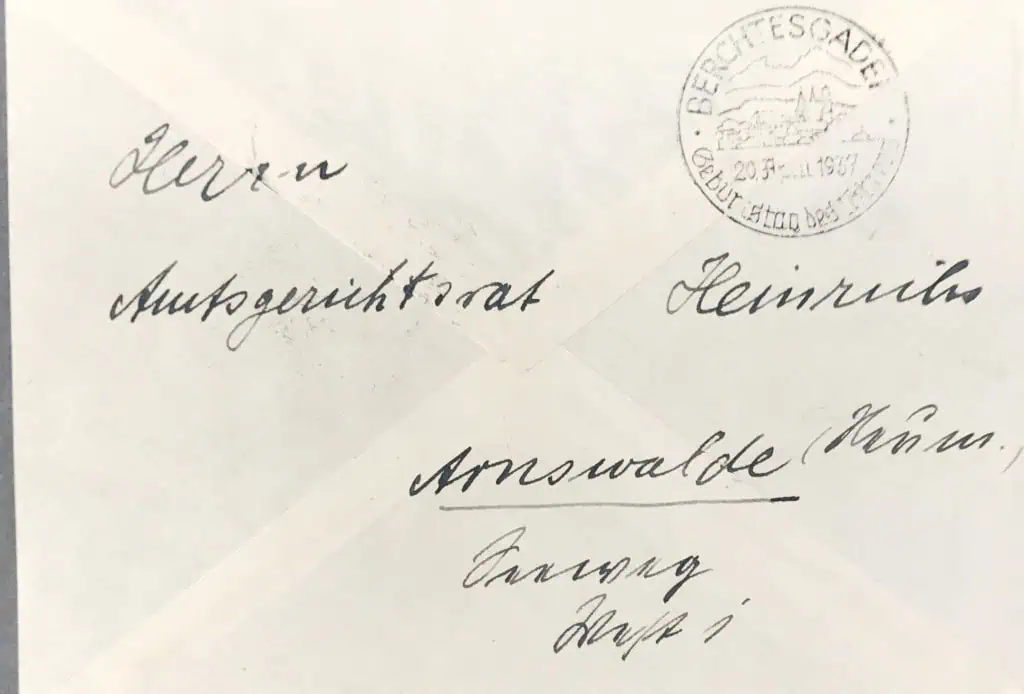 BERCHTESGADEN
20. April 1937
Geburtstag des Führers
Herrn
Amtsgerichtsrat Heinrichs
Arnswalde (Neum.)
Seeweg